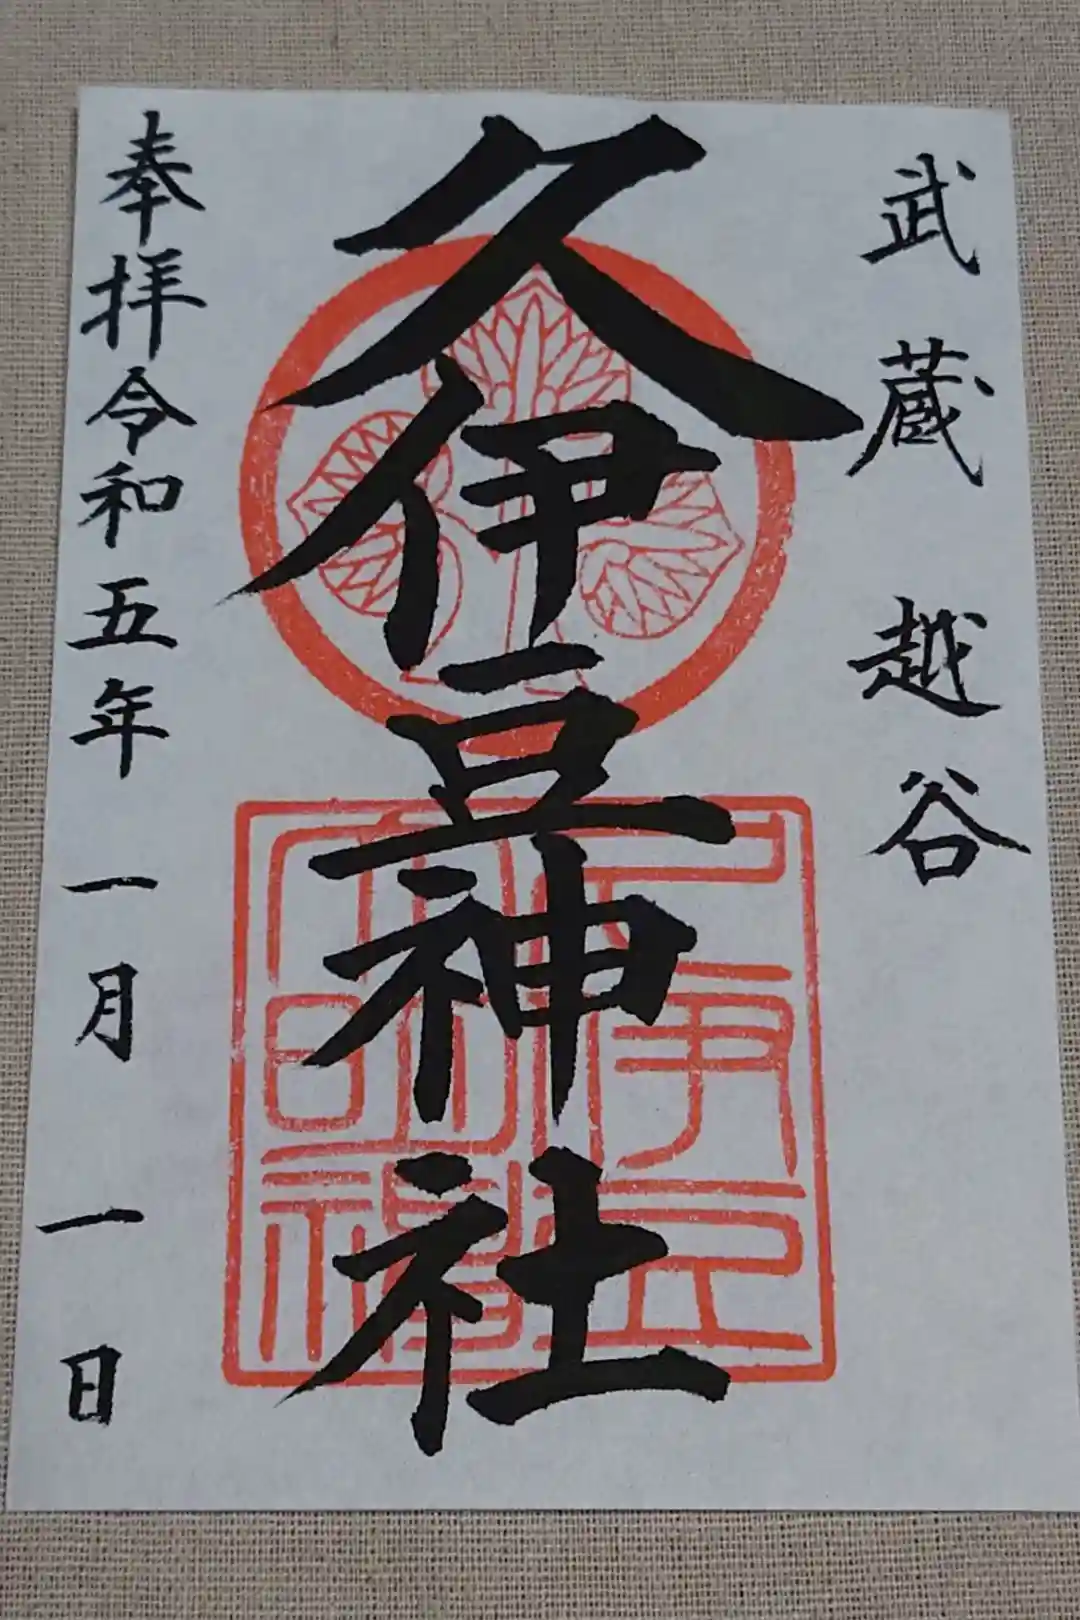 武蔵 越谷
久伊豆神社
奉拝 令和五年 一月 一日